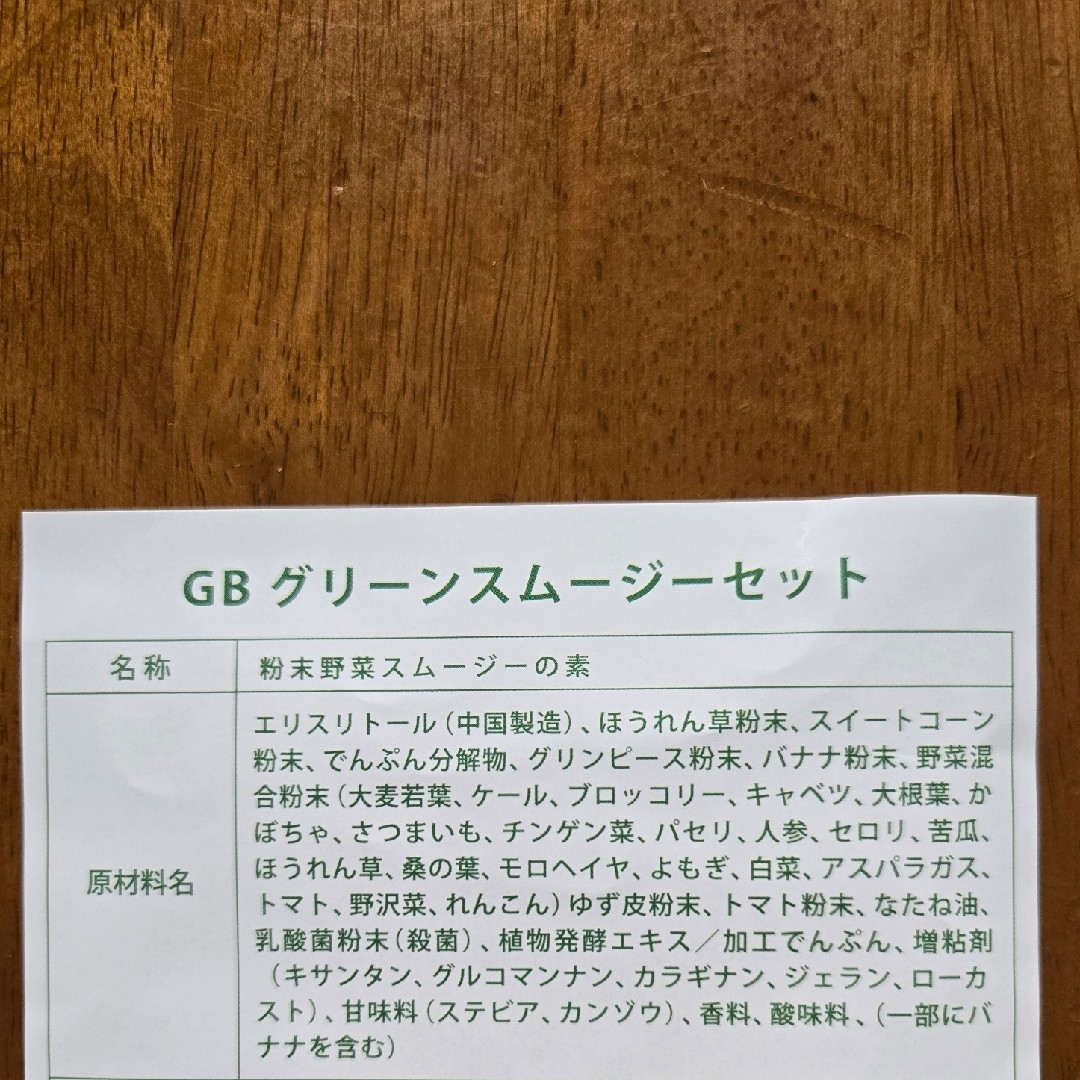 GB グリーンスムージーセット
名称
粉末野菜スムージーの素
原材料名
エリスリトール（中国製造）、ほうれん草粉末、スイートコーン
粉末、でんぷん分解物、グリンピース粉末、バナナ粉末、野菜混
合粉末（大麦若葉、ケール、ブロッコリー、キャベツ、大根葉、か
ぼちゃ、さつまいも、チンゲン菜、パセリ、人参、セロリ、苦瓜、
ほうれん草、桑の葉、モロヘイヤ、よもぎ、白菜、アスパラガス、
トマト、野沢菜、れんこん）ゆず皮粉末、トマト粉末、なたね油、
乳酸菌粉末（殺菌）、植物発酵エキス／加工でんぷん、増粘剤
（キサンタン、グルコマンナン、カラギナン、ジェラン、ローカ
スト）、甘味料（ステビア、カンゾウ）、香料、酸味料、（一部にバ
ナナを含む）